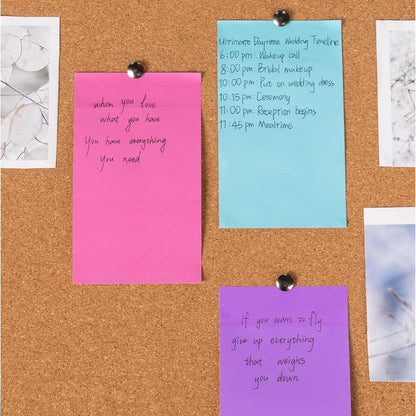 when you love
what you have
You have everything
You need
Ultimate Daytime Wedding Timeline
6:00 pm: Wakeup call
8:00 pm: Bridal makeup
10:00 pm: Put on wedding dress
10:15 pm: Ceremony
11:00 pm: Reception begins
11:45 pm: Mealtime
If you want to fly
give up everything
that weighs
you down